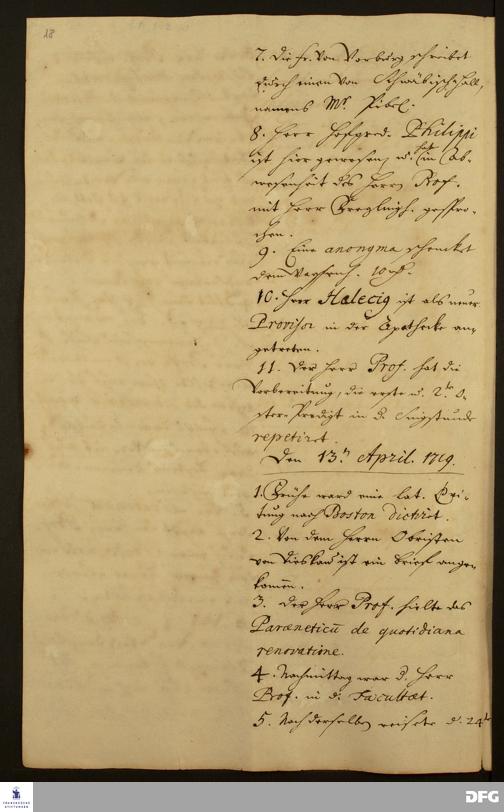 18
7. Die Fr. von Vorburg schreibet
durch einen von Schwäbischhall,
namens Mr. Pibel.
8. Herr Hofpred. Philippi
ist hier gewesen, u. hat in Ab-
wesenheit des Herrn Prof.
mit Herr Freylingh. gespro-
chen.
9. Eine anonyma schencket
dem Waysenh. 10
10. Herr Halecig ist als neuer
Provisor in der Apothecke an-
getreten.
11. Der Herr Prof. hat die
Vorbereitung, die erste u. 2te O-
ster-Predigt in d. Singstunde
repetiret.
Den 13ten April. 1719.
1. Frühe ward eine lat. Zei-
tung nach Boston dictiret.
2. Von dem Herrn Obristen
von Dieskau ist ein brief ange-
kommen.
3. Der Herr Prof. hielte das
Paræneticū de quotidiana
renovatione.
4. Nachmittag war d. Herr
Prof. in d. Facultæt.
5. Nach derselben reisete d. 24te
FRANCKESCHE
STIFTUNGEN
DFG